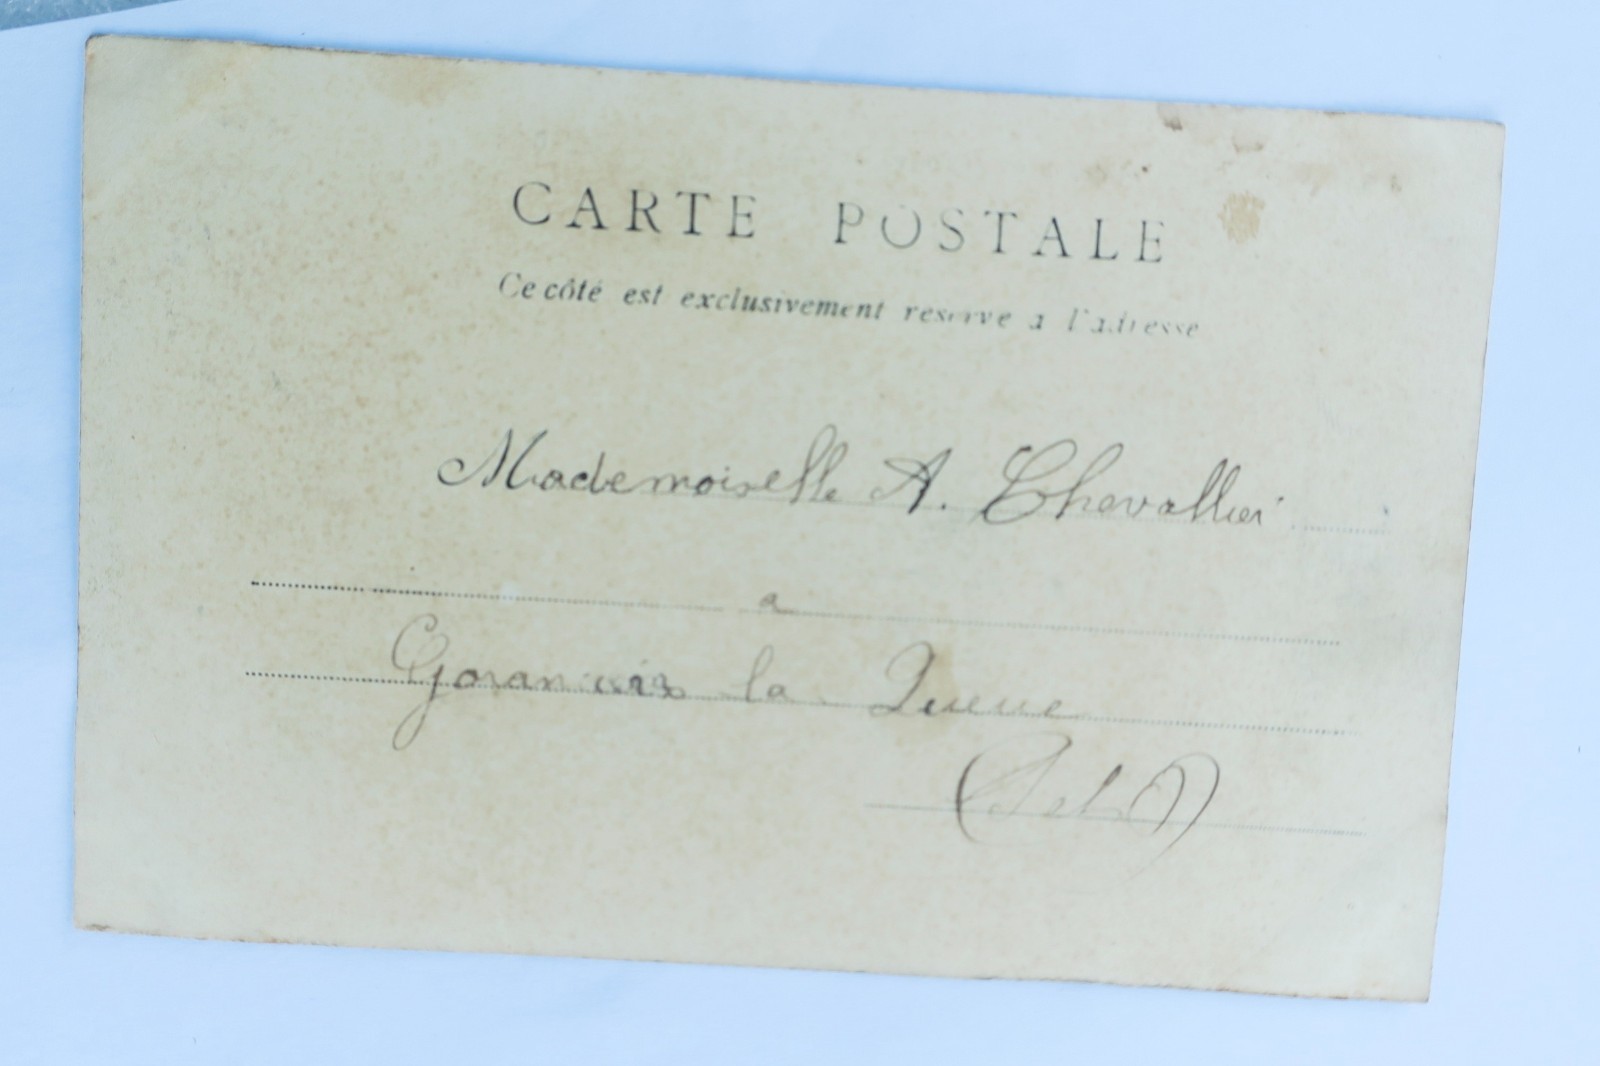 CARTE POSTALE
Ce côté est exclusivement reserve a l'adresse
Mademoiselle A. Chevallier
a
la Queue